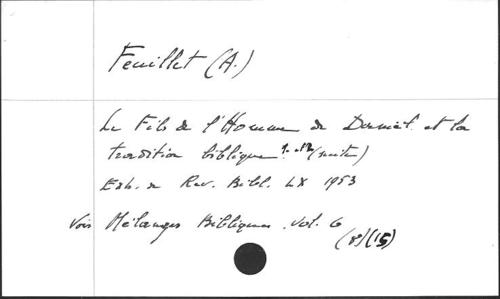 Feuillet (A.)
Le Fils de l'Homme de Daniel et la
tradition biblique (suite)
Extr. de Rev. Bibl. LX 1953
Voir Mélanges Bibliques. vol. 6
(8)(15)